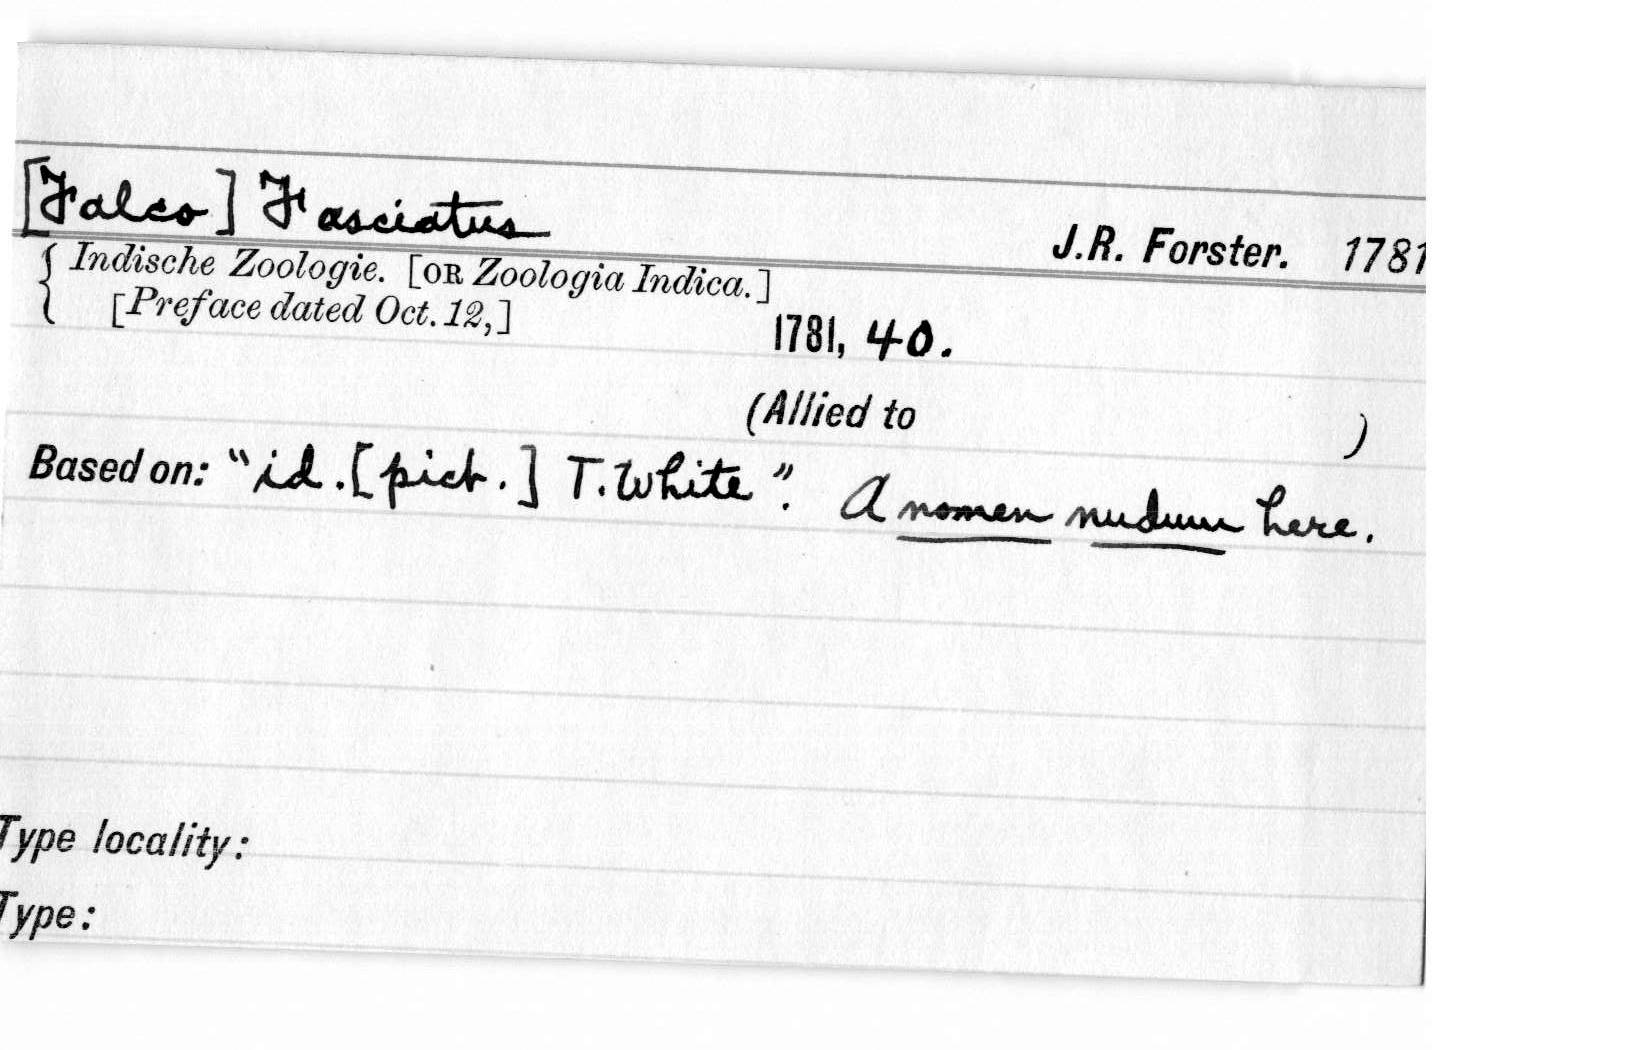 [Falco] Fasciatus
J.R. Forster. 1781
Indische Zoologie. [OR Zoologia Indica.]
[Preface dated Oct. 12,]
1781, 40.
(Allied to )
Based on: "id. [pict.] T. White". A nomen nudum here.
Type locality:
Type: